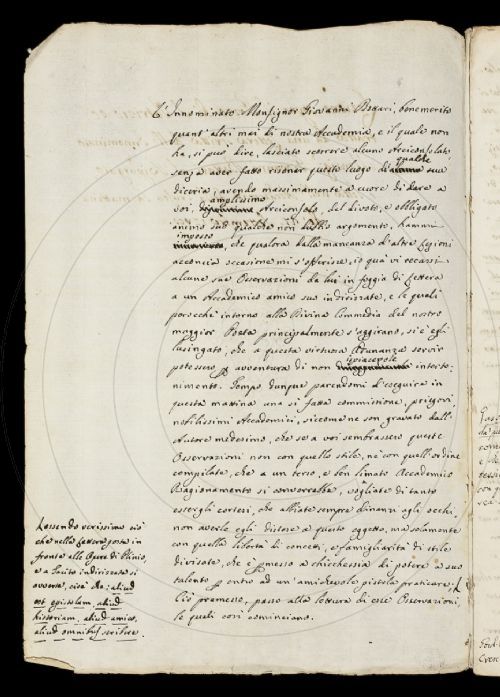 L'Innominato Monsignor Giovanni Bottari, benemerito
quant'altri mai di nostra Accademia, e il quale non
ha, si può dire, lasciato scorrere alcuno Arciconsolato,
qualche
senza aver fatto risonar questo luogo di alcuna sua
diceria, avendo massimamente a cuore di dare a
amplissimo
voi, Arciconsolo, del divoto, e obligato
animo suo qualche non dubbio argomento, hammi
imposto
che qualora dalla mancanza d'altre lezioni
acconcia occasione mi s'offerisse, io quà vi recassi
alcune sue Osservazioni da lui in foggia di lettera
a un Accademico amico suo indirizzate, e le quali
perocchè intorno alla Divina Commedia del nostro
maggior Poeta principalmente s'aggirano, si è egli
lusingato, che a questa virtuosa Adunanza servir
ispiacevole
potessero per avventura di non interte-
nimento. Tempo dunque parendomi d'eseguire in
questa mattina una sì fatta commissione, pregovi
nobilissimi Accademici, siccome ne son gravato dall'
Autore medesimo, che se a voi sembrassero queste
Osservazioni non con quello stile, nè con quell'ordine
compilate, che a un terso, e ben limato Accademico
Ragionamento si converrebbe, vogliate di tanto
essergli cortesi, che abbiate sempre dinanzi agli occhi,
non averle egli distese a questo oggetto, ma solamente
con quella libertà di concetti, e famigliarità di stile
divisate, che è permesso a chicchessia di potere a suo
talento per entro ad un'amichevole pistola praticare.
Ciò premesso, passo alla lettura di esse Osservazioni,
le quali così cominciano.
Essendo verissimo ciò
che nella lettera posta in
fronte alle Opere di Plinio,
e a Tacito indirizzata si
avverte, cioè che: aliud
est epistolam, aliud
historiam, aliud amico,
aliud omnibus scribere.